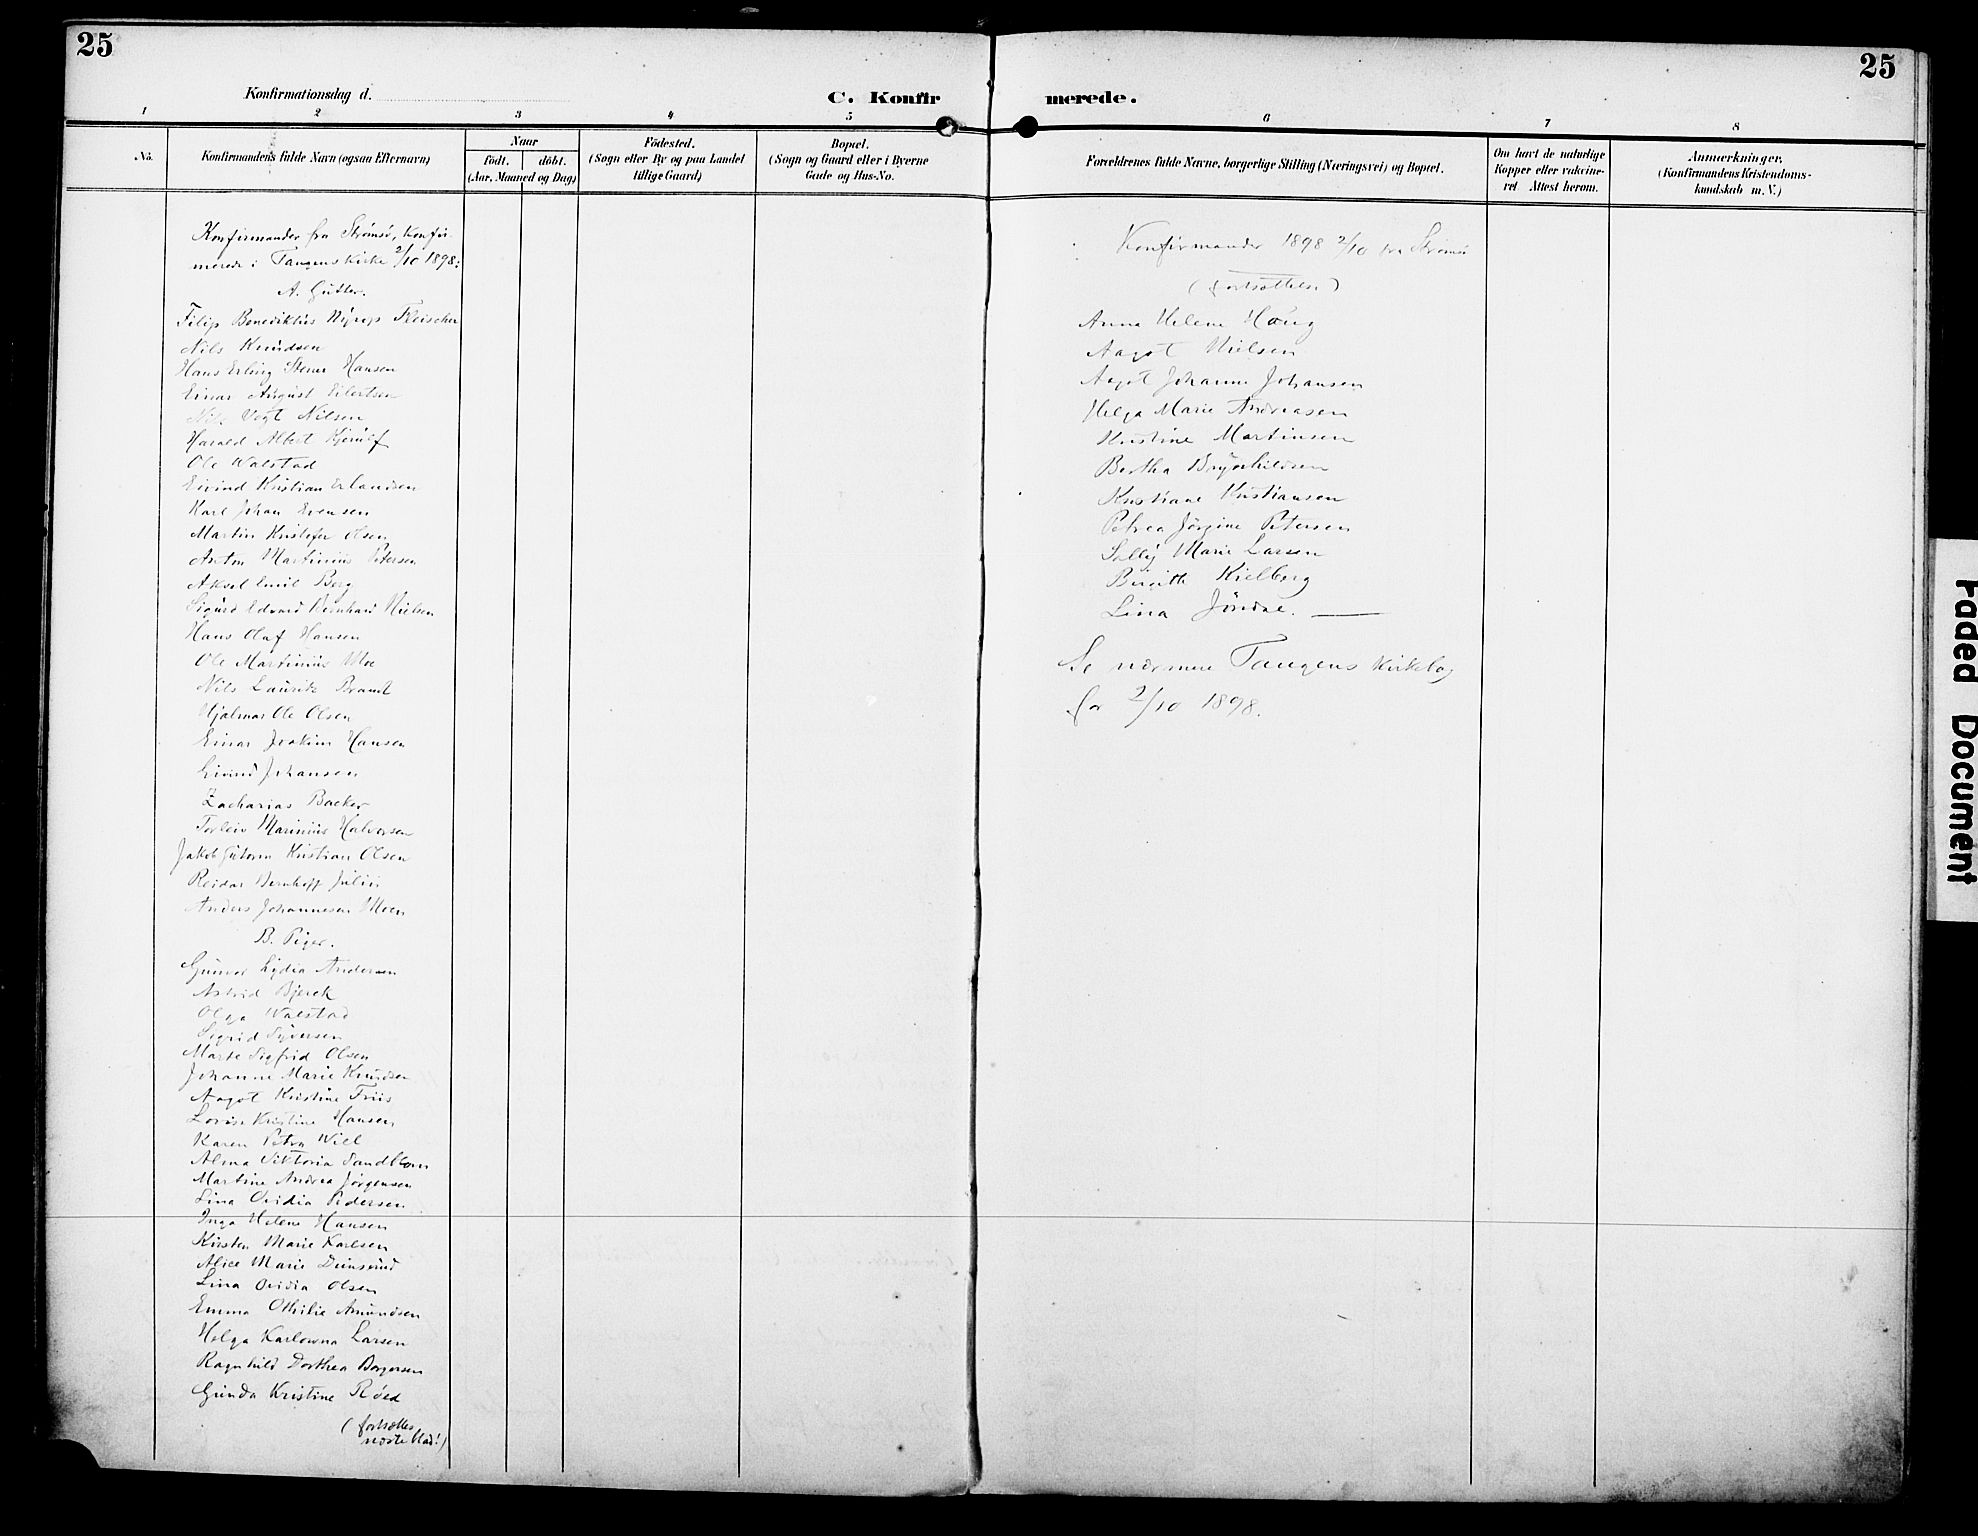 25
25
Konfirmationsdag d.
C. Konfir
merede.
1
2
3
4
5
6
7
8
No.
Konfirmandens fulde Navn (ogsaa Efternavn)
Naar
født.
døbt.
(Aar, Maaned og Dag)
Fødested.
(Sogn eller By og paa Landet
tillige Gaard)
Bopæl.
(Sogn og Gaard eller i Byerne
Gade og Hus-No.
Forældrenes fulde Navne, borgerlige Stilling (Næringsvei) og Bopæl.
Om havt de naturlige
Kopper eller vakcine-
ret Attest herom.
Anmærkninger.
(Konfirmandens Kristendoms-
kundskab m. V.)
Konfirmander fra Strømsø, konfir-
merede i Tangens kirke 2/10 1898:
A. Gutter.
Filip Benediktus Nyrop Fleischer
Nils Knudsen
Hans Erling Stener Hansen
Einar August Eilertsen
Nils Vogt Nilsen
Harald Albert Kjerulf
Ole Walstad
Eivind Kristian Erlandsen
Karl Johan Evensen
Martin Kristofer Olsen
Anton Martinius Petersen
Aksel Emil Berg
Sigurd Edvard Bernhard Nielsen
Hans Olaf Hansen
Ole Martinius Moe
Nils Lauritz Brandt
Hjalmar Ole Olsen
Einar Joakim Hansen
Eivind Johansen
Zacharias Backer
Torleiv Marinius Halvorsen
Jakob Gutorm Kristian Olsen
Reidar Bernhoff Julin
Anders Johannesen Moen
B. Piger.
Gunvor Lydia Andersen
Astrid Bjerck
Olga Walstad
Sigrid Syversen
Marte Sigfrid Olsen
Johanne Marie Knudsen
Aagot Kristine Friis
Lovise Kristine Hansen
Karen Petra Wiel
Alma Viktoria Sandblom
Martine Andrea Jørgensen
Lina Ovidia Pedersen
Inga Helene Hansen
Kirsten Marie Karlsen
Alice Marie
Lina Ovidia Olsen
Emma Othilie Amundsen
Helga Karlowna Larsen
Ragnhild Dorthea Borgersen
Gunda Kristine Röed
(fortsættes
næste blad!)
Konfirmander 1898 2/10 fra Strømsø
(fortsættelse)
Anna Helene Haug
Aagot Nielsen
Aagot Johanne Johansen
Helga Marie Andreasen
Kristine Martinsen
Bertha Brynhildsen
Kristiane Kristiansen
Petrea Jörgine Petersen
Sally Marie Larsen
Birgith Kielberg
Lina Jöndal.
Se nærmere Tangens kirkebog
for 2/10 1898.
Faded Document